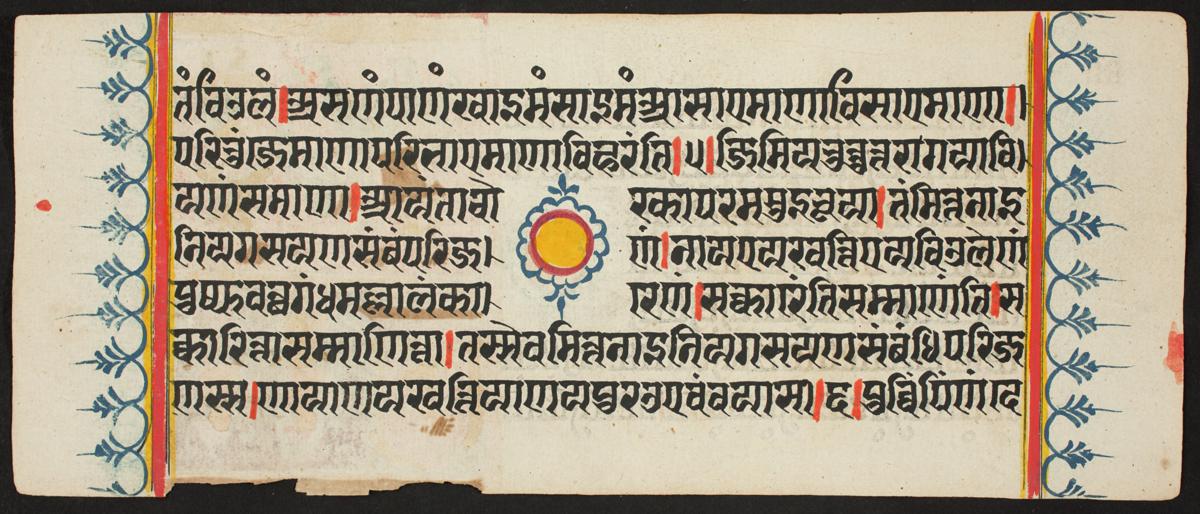 तं विउलं।असणं पाणं खाइमं साइमं आसाएमाणा विसाएमाणा।
परिभुंजेमाणा परिभाएमाणा विहरंति।५।जिमियभुत्तुत्तरागया वि
य णं समाणा।आयंता चोक्खा परमसुइभूया।तं मित्तनाइ
नियगसयणसंबंपरिजणं।नायए य खत्तिए य विउलेणं
पुप्फवत्थगंधमल्लालंकारेणं।सक्कारेंति सम्माणेंति।स
क्कारित्ता सम्माणित्ता।तस्सेव मित्तनाइनियगसयणसंबंधिपरिज
णस्स।णायाण य खत्तियाण य पुरउ एवं वयासी।छ।पुव्विं पि णं दे